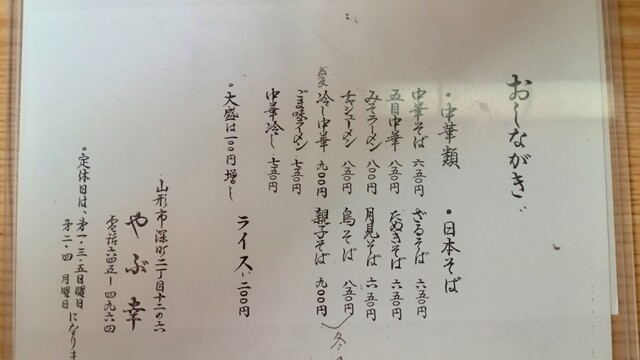 おしながき
・中華類
中華そば 六五〇円
五目中華 八五〇円
みそラーメン 八〇〇円
チャシューメン 八五〇円
冷し中華 九〇〇円
ごま味ラーメン 七五〇円
中華冷し 七五〇円
・大盛は一〇〇円増し
・日本そば
ざるそば 六五〇円
たぬきそば 六五〇円
月見そば 六五〇円
鳥そば 八五〇円
親子そば 九〇〇円
ライス 二〇〇円
山形市深町二丁目十二の六
やぶ幸
電話六四五ー四九六四
・定休日は、第一・三・五日曜日
第二・四 月曜日 になりま